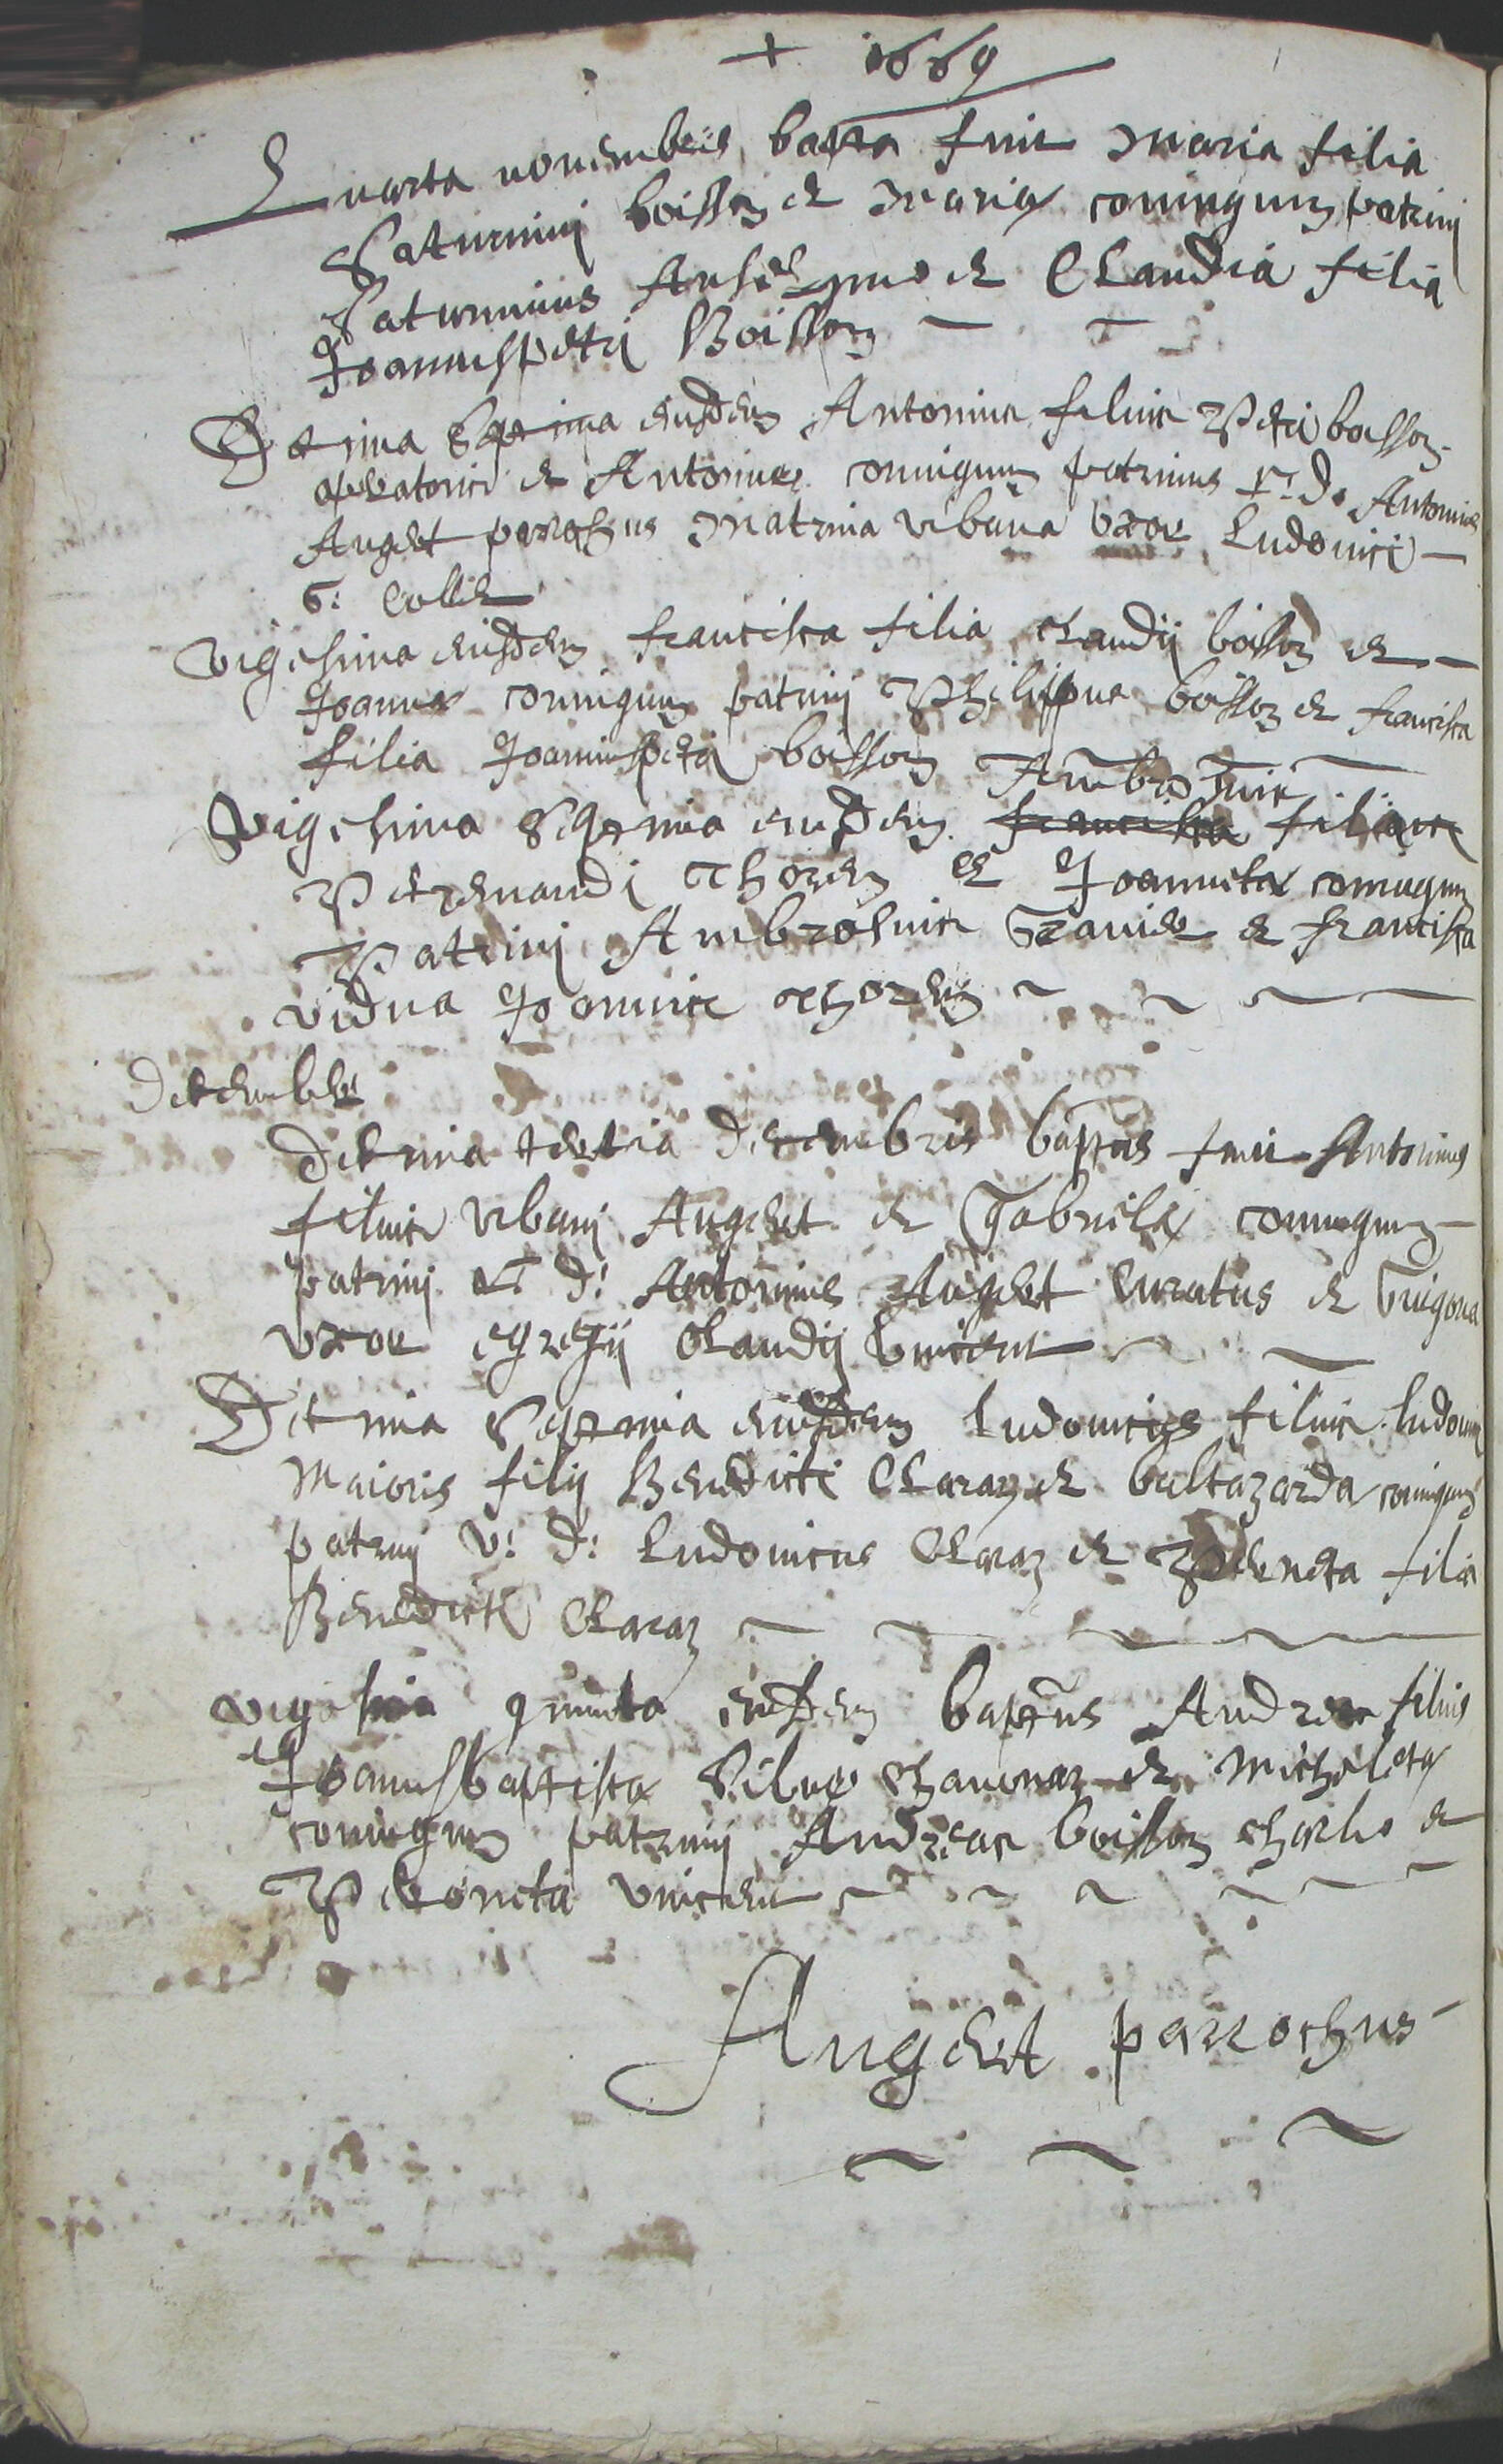 + 1669
Quarta novembris bapta fuit Maria filia
Saturnini boisson et Mariæ coniugum patrini
Saturninus Anselme et Claudia filia
Joannispetri Boisson
Decima septima eiusdem Antonius filius Petri boisson
et Antoniæ coniugum patrinus r: d: Antonius
Auget parochus matrina Urbana uxor Ludovici
Collet
Vigesima eiusdem francisca filia claudii boisson et
Joannæ coniugum patrini Philippus boisson et francisca
filia Joannispetri boisson
Ambrosius
Vigesima septima eiusdem francisca filius
Petremandi Thorens et Joannetæ coniugum
Patrini Ambrosius et francisca
vidua Joannis Thorens
Decembris
Decima tertia Decembris baptus fuit Antonius
filius Urbani Auget et Gabrielæ coniugum
patrini r: d: Antonius Auget Curatus et
uxor egregii Claudii Vincent
Decima septima eiusdem Ludovicus filius Ludovici
maioris filii Benedicti Claraz et baltazardæ coniugum
patrini v: d: Ludovicus Claraz et Perneta filia
Benedicti Claraz
vigesima quinta eiusdem baptus Andreas filius
Joannisbaptistæ Silve Chavonaz et Micholetæ
coniugum patrini Andreas boisson et
Peroneta Vincent
Auget parrochus